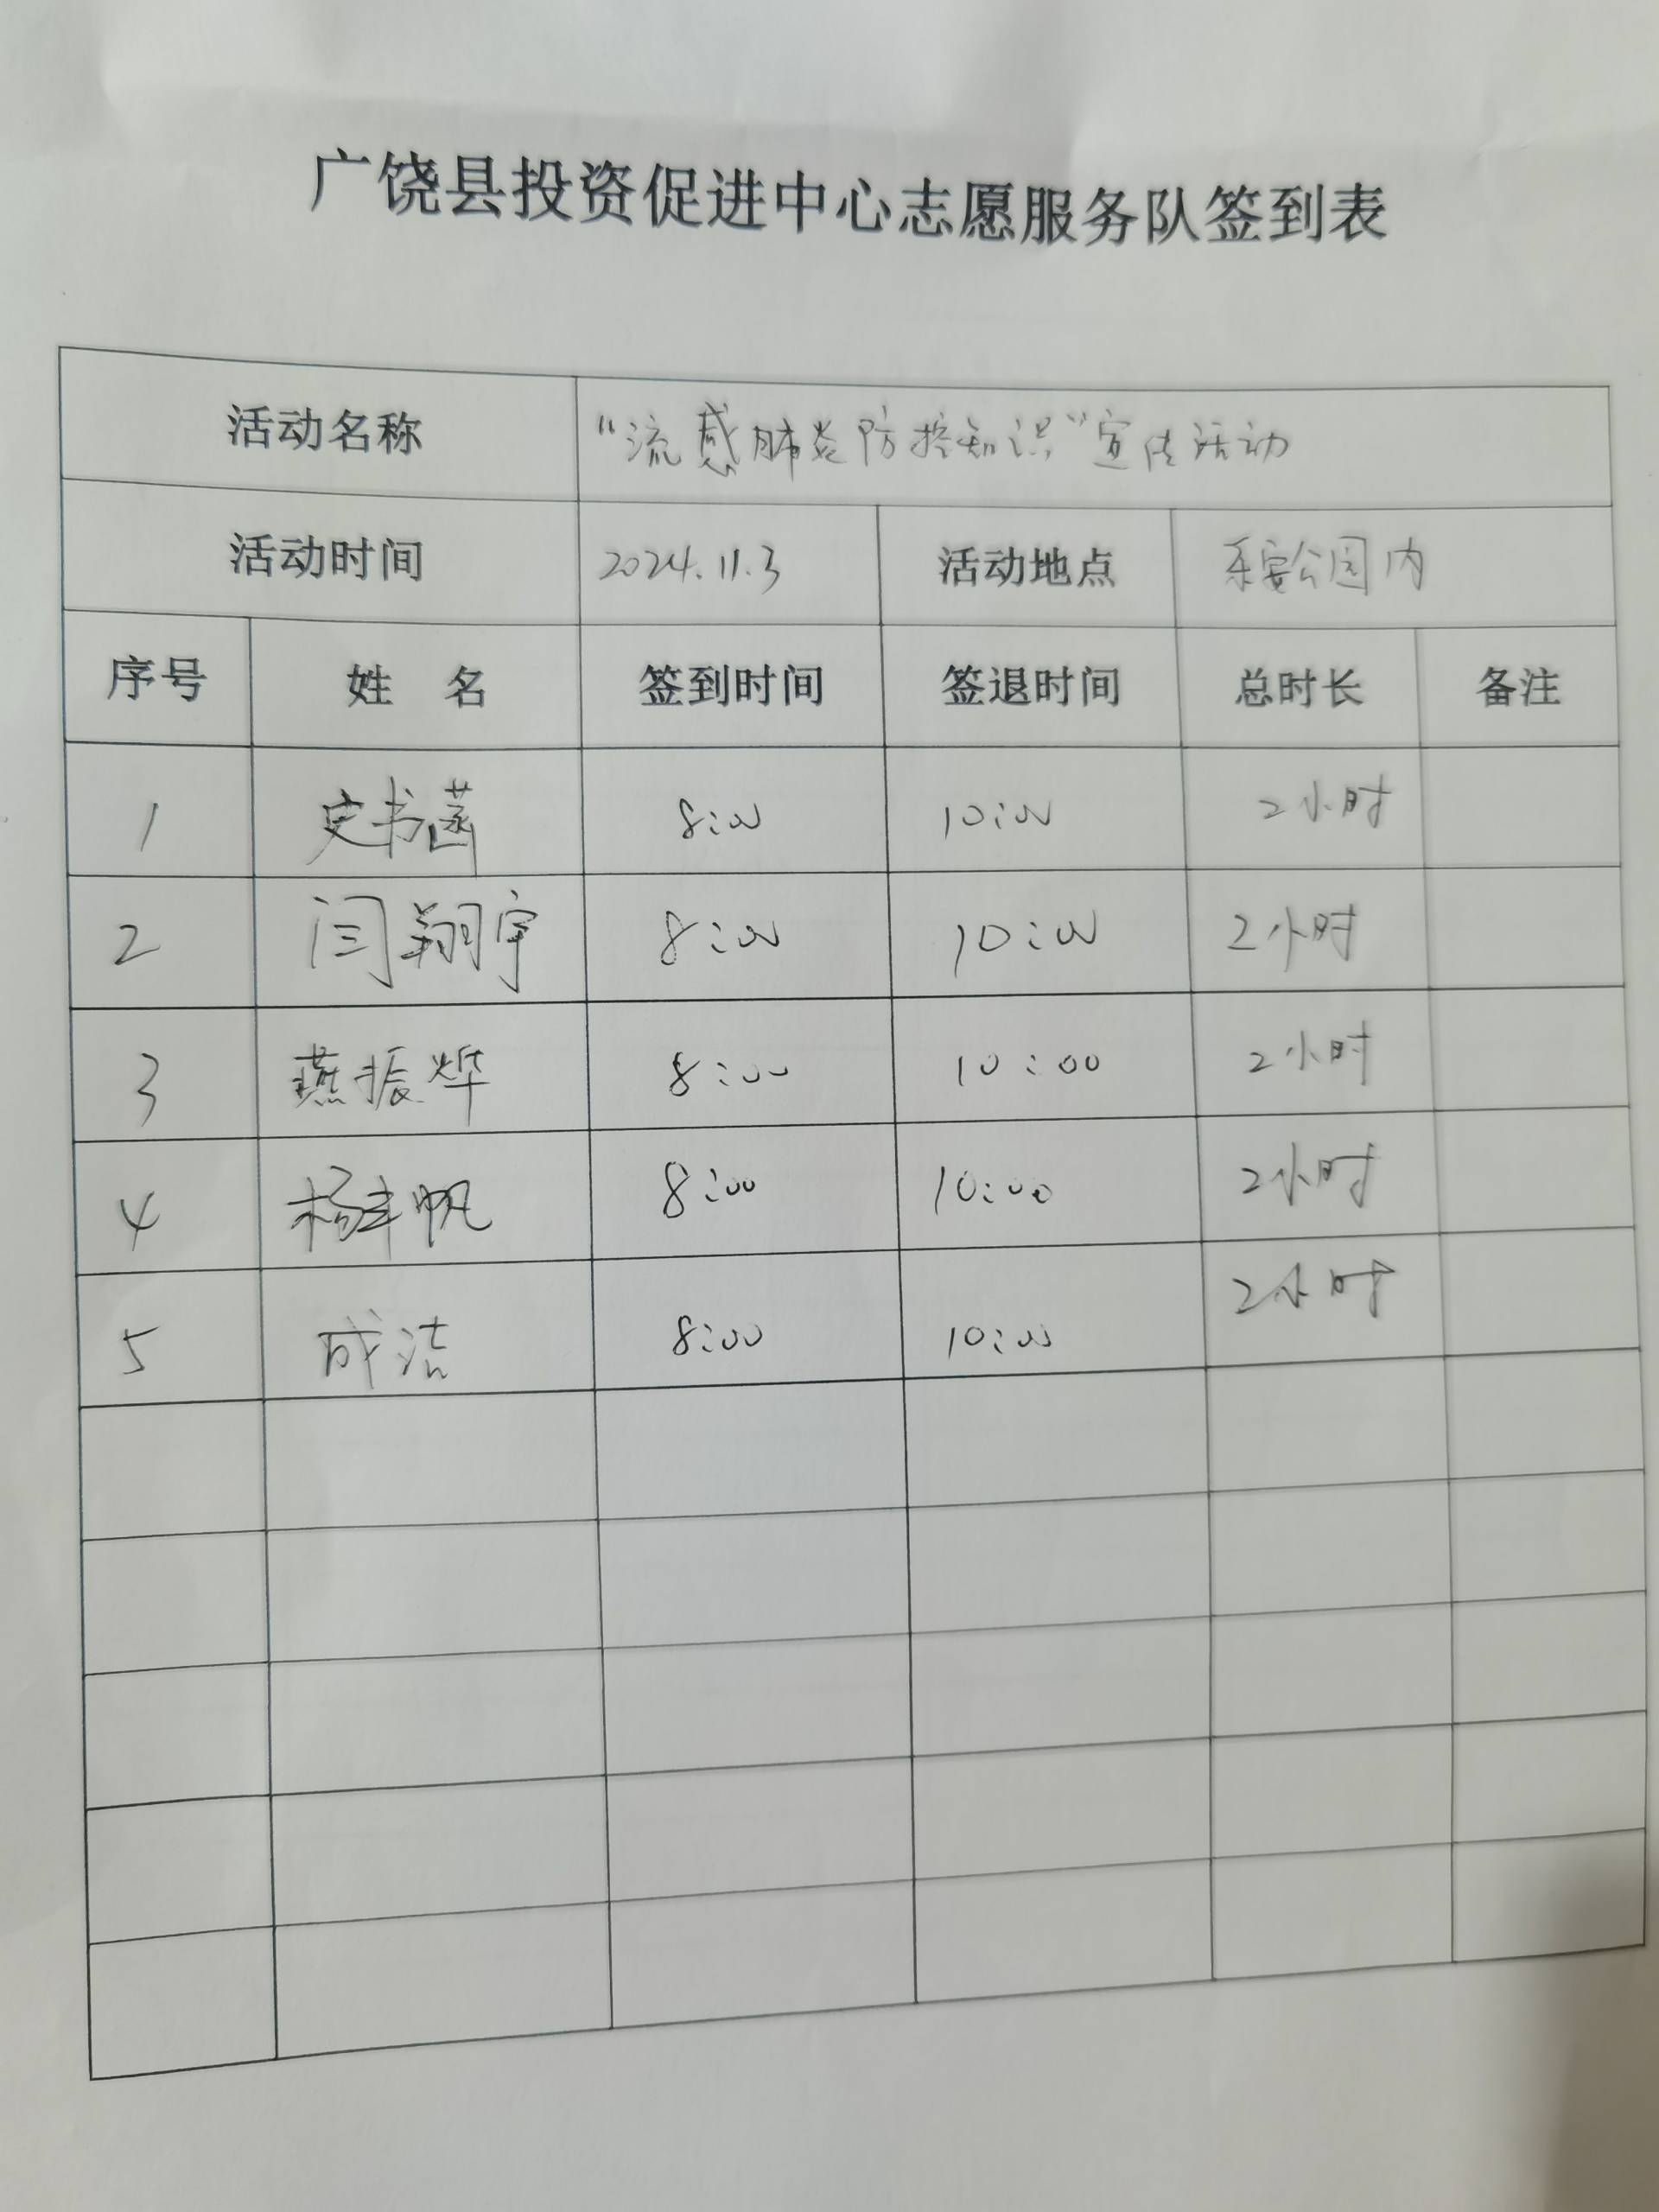 广饶县投资促进中心志愿服务队签到表
活动名称 “流感肺炎防控知识”宣传活动
活动时间 2024.11.3 活动地点 乐安公园内
序号 姓 名 签到时间 签退时间 总时长 备注
1 史书菡 8:00 10:00 2小时
2 闫翔宇 8:00 10:00 2小时
3 燕振烨 8:00 10:00 2小时
4 杨丰帆 8:00 10:00 2小时
5 成洁 8:00 10:00 2小时